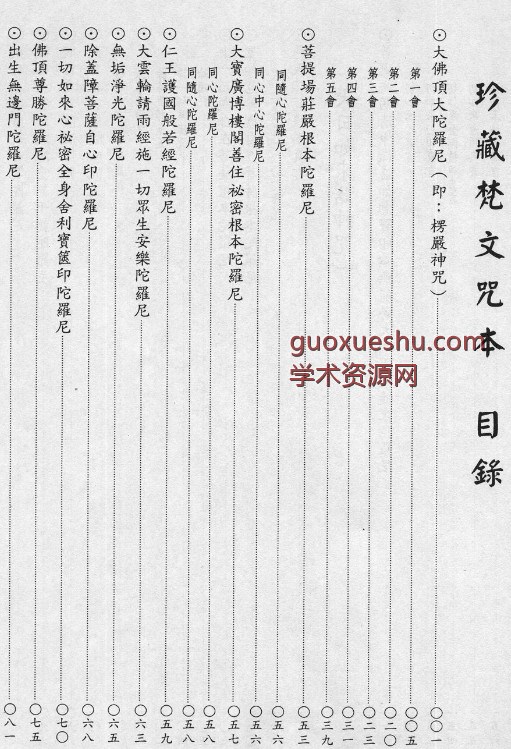 珍藏梵文咒本 目錄
⊙大佛頂大陀羅尼（即：楞嚴神咒）……○○一
第一會……○○五
第二會……○二○
第三會……○二三
第四會……○三一
第五會……○三九
⊙菩提場莊嚴根本陀羅尼……○五三
同隨心陀羅尼……○五六
同心中心陀羅尼……○五六
⊙大寶廣博樓閣善住祕密根本陀羅尼……○五七
同心陀羅尼……○五八
同隨心陀羅尼……○五八
⊙仁王護國般若經陀羅尼……○五九
⊙大雲輪請雨經施一切眾生安樂陀羅尼……○六三
⊙無垢淨光陀羅尼……○六五
⊙除蓋障菩薩自心印陀羅尼……○六八
⊙一切如來心祕密全身舍利寶篋印陀羅尼……○七○
⊙佛頂尊勝陀羅尼……○七五
⊙出生無邊門陀羅尼……○八一
guoxueshu.com
学术资源网